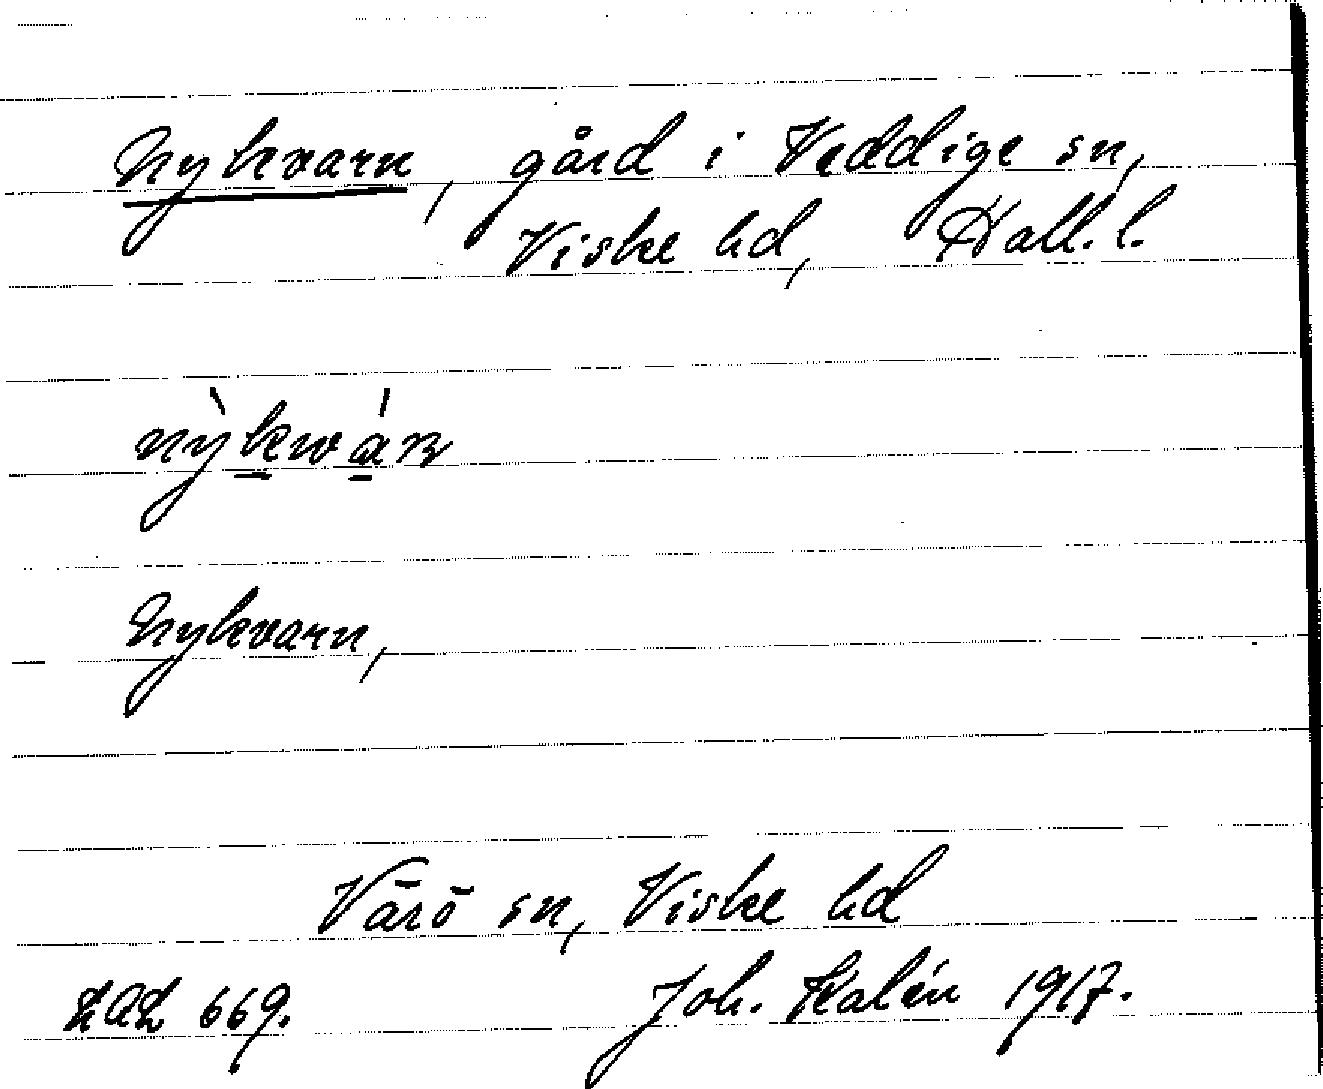 Nykvarn, gård i Veddige sn,
Viske hd, Hall. l.
Nykvarn,
Värö sn, Viske hd
LAL 669. Joh. Kalén 1917.